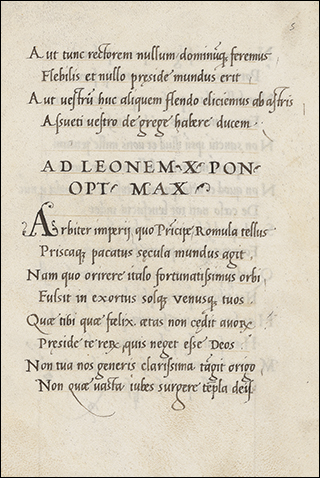 5
Aut tunc rectorem nullum dominūq; feremus
Flebilis et nullo preside mundus erit
Aut vestrū huc aliquem flendo eliciemus ab astris
Assueti vestro de grege habere ducem
AD LEONEM X PON
OPT MAX
Arbiter imperij quo Prīcipe Romula tellus
Priscaq; pacatus secula mundus agit
Nam quo orirere italo fortunatissimus orbi
Fulsit in exortus solq; venusq; tuos
Quæ tibi quæ fælix ætas non cedit auorȝ
Preside te rerȝ quis neget esse Deos
Non tua nos generis clarissima tāgit origo
Non quæ vasta iubes surgere tēpla deū